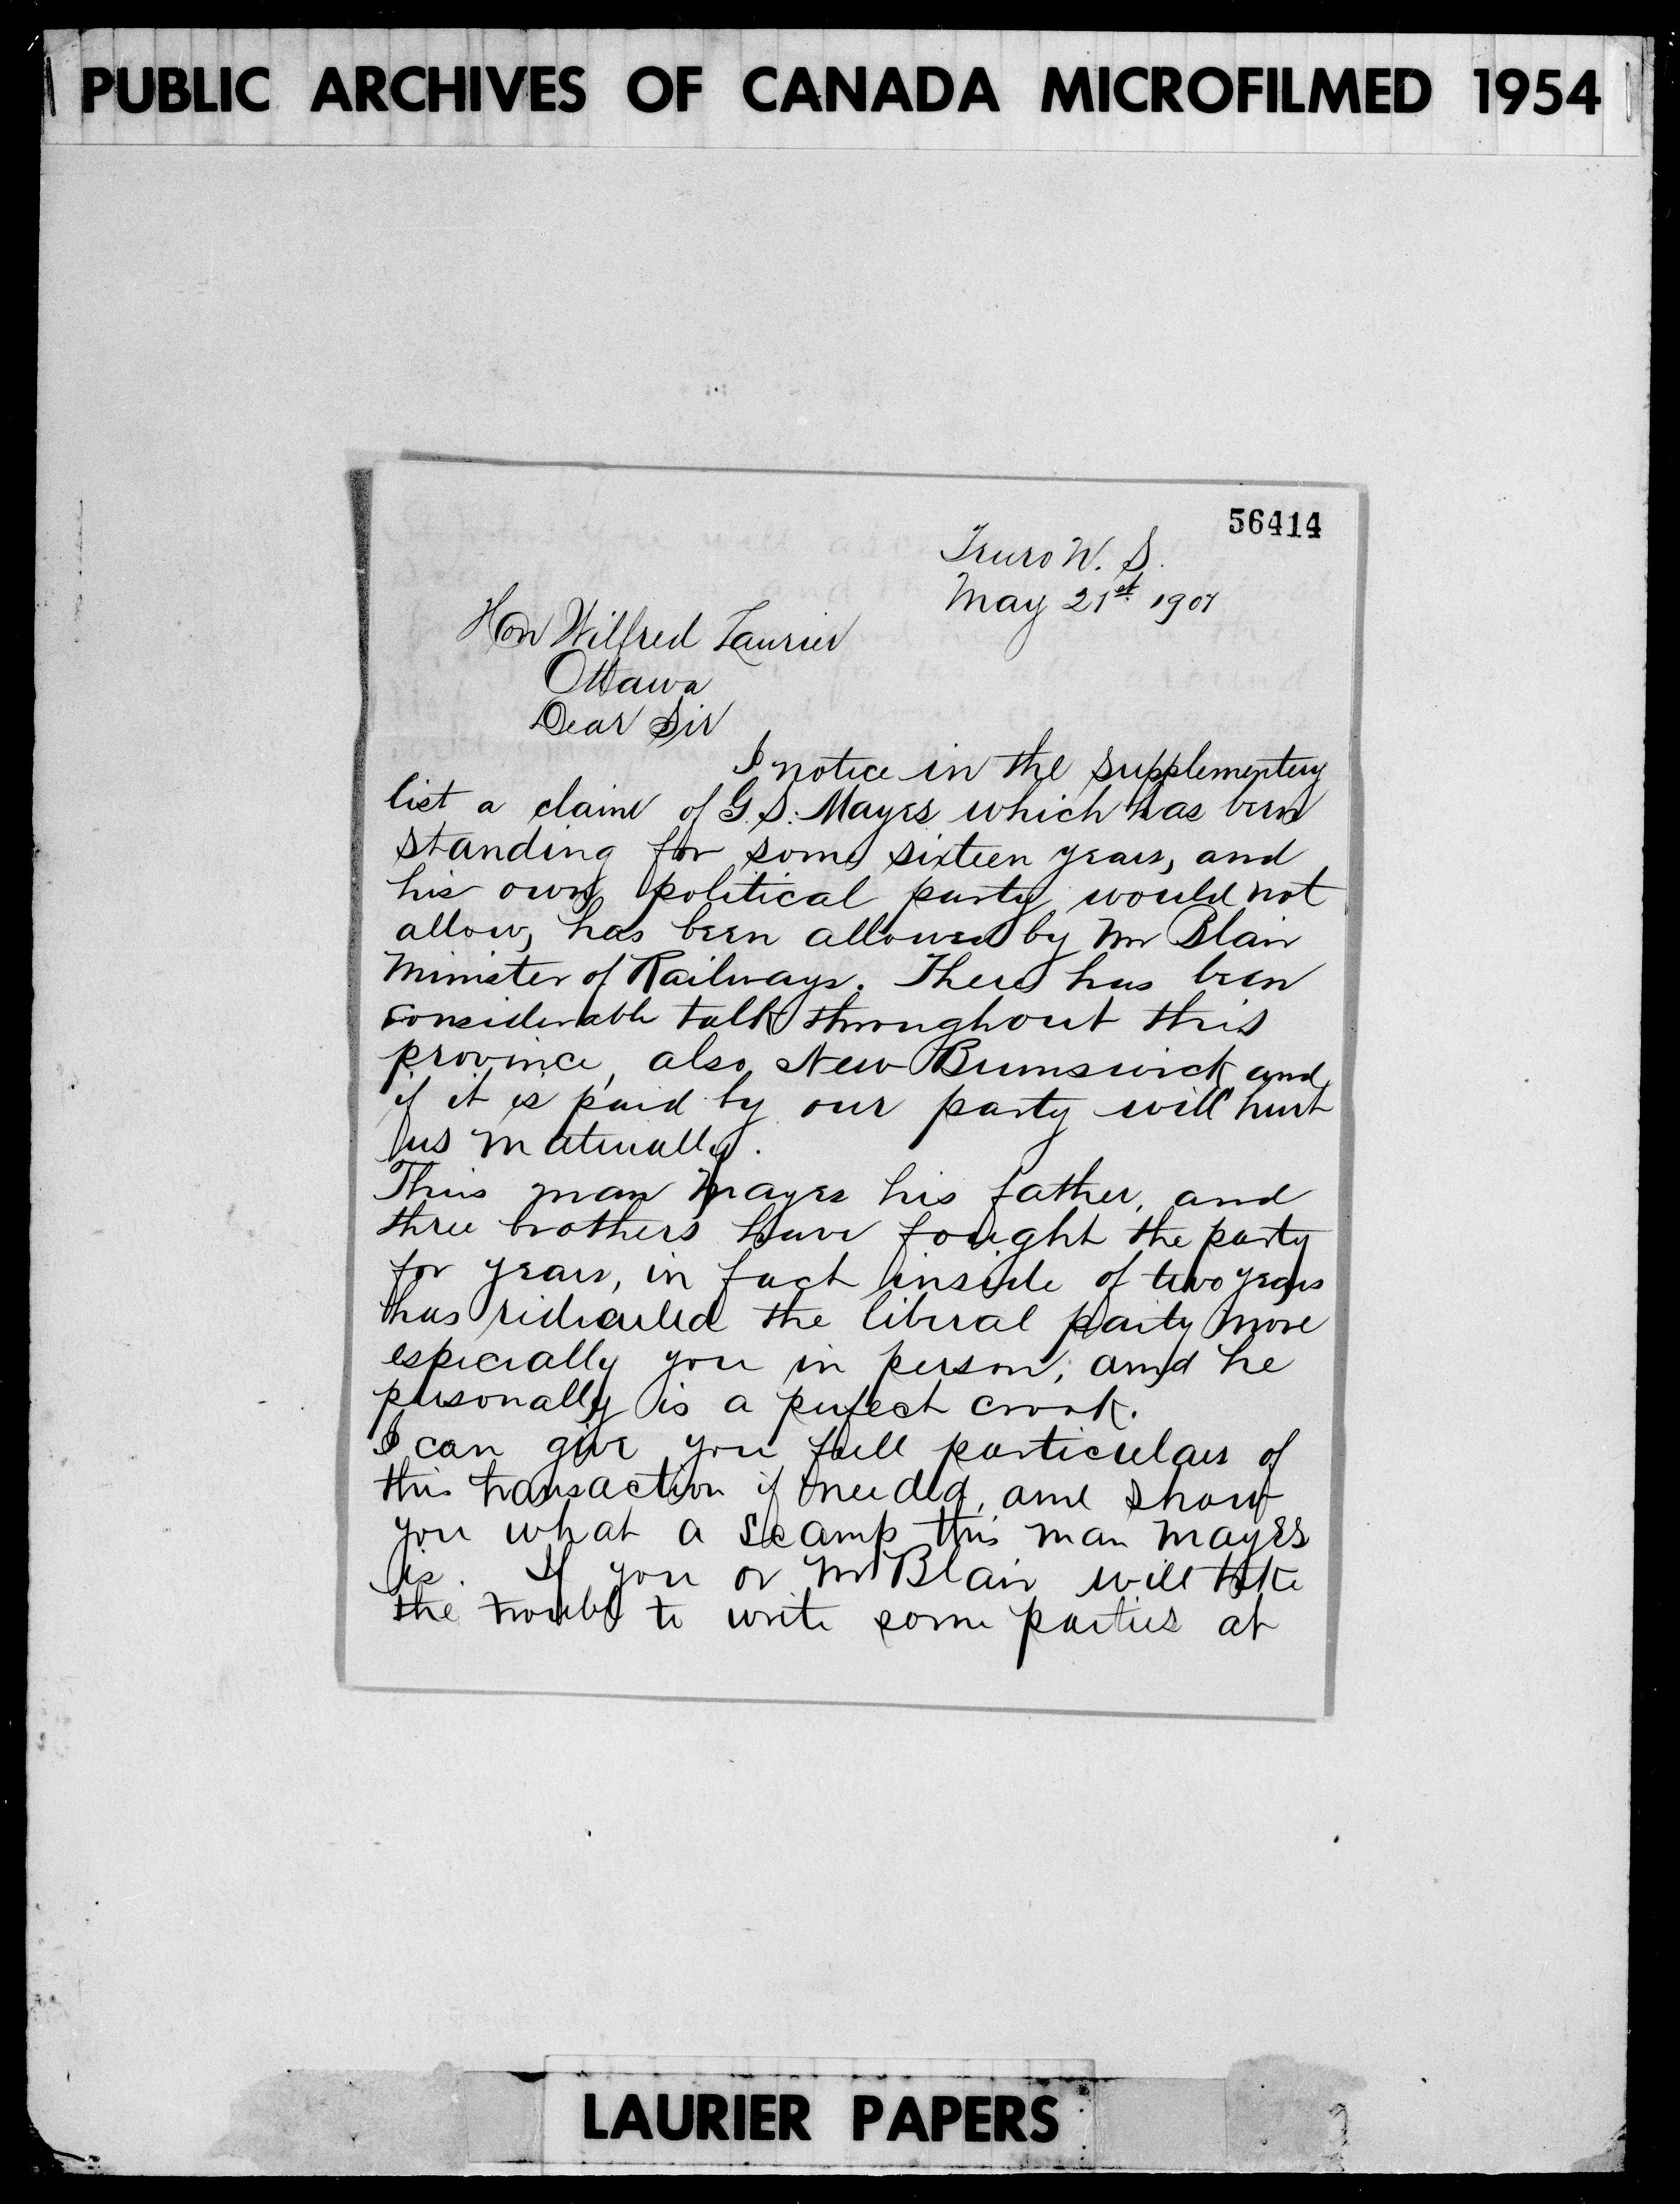 PUBLIC ARCHIVES OF CANADA MICROFILMED 1954
56414
Truro N. S.
May 21st 1901
Hon Wilfred Laurier
Ottawa
Dear Sir
I notice in the supplementery
list a claim of G. S. Mayes which has been
standing for some sixteen years, and
his own political party would not
allow, has been allowed by Mr Blair
Minister of Railways. There has been
considerable talk throughout this
province, also New Brunswick and
if it is paid by our party will hurt
us materially.
This man Mayes his father, and
three brothers have fought the party
for years, in fact inside of two years
has ridiculed the liberal party more
especially you in person, and he
personally is a perfect crook.
I can give you full particulars of
this transaction if needed, and show
you what a scamp this man Mayes
is. If you or Mr Blair will take
the trouble to write some parties at
LAURIER PAPERS